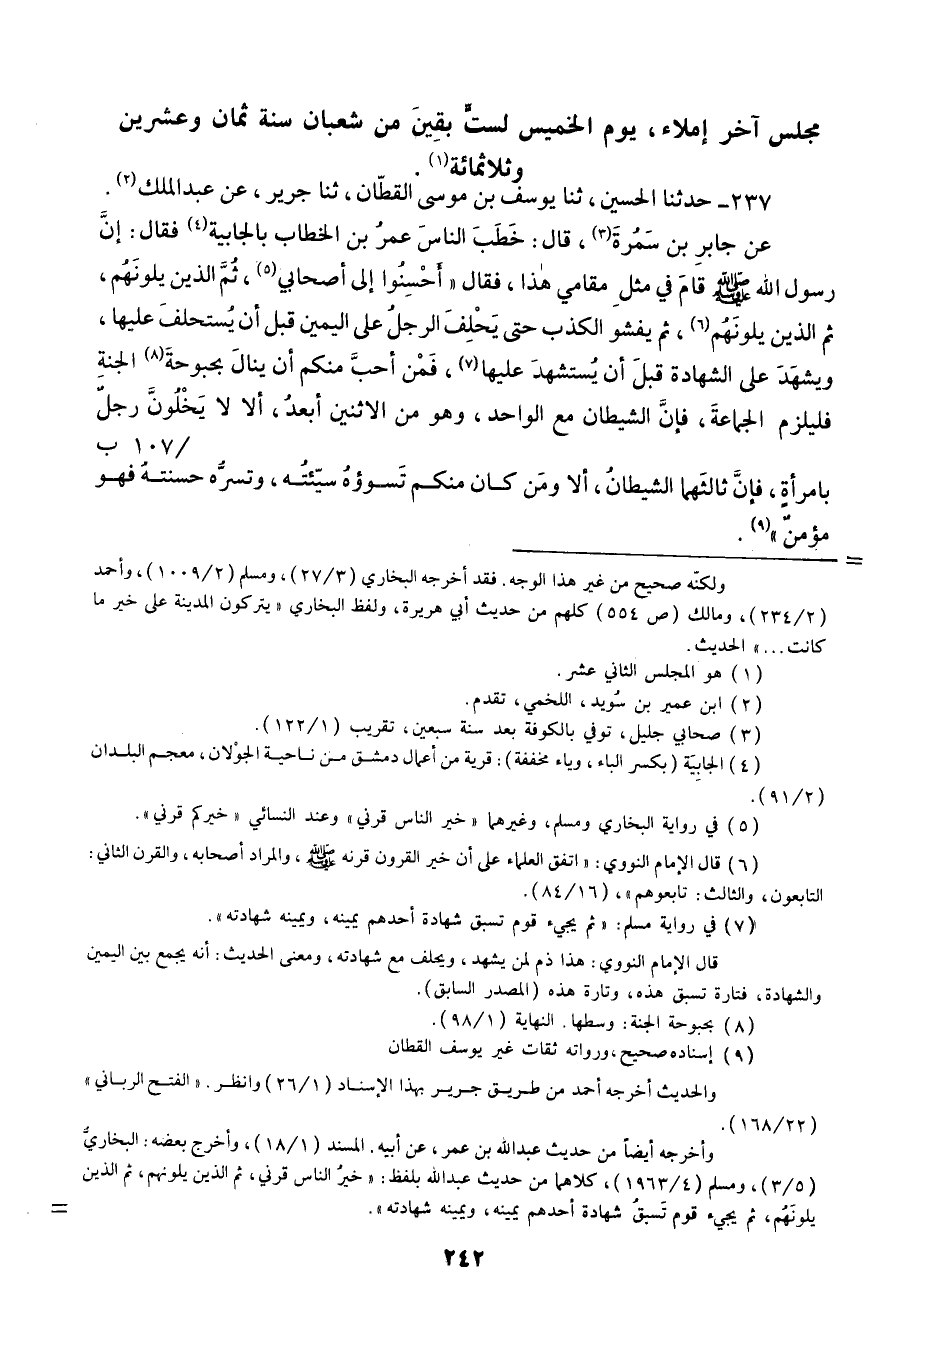 مجلس آخر إملاء، يوم الخميس لستٍّ بقِينَ من شعبان سنة ثمان وعشرين
وثلاثمائة(١).
٢٣٧ـ حدثنا الحسين، ثنا يوسف بن موسى القطّان، ثنا جرير، عن عبدالملك(٢).
عن جابرِ بن سَمُرةَ(٣)، قال: خَطَبَ الناسَ عمرُ بن الخطاب بالجابية(٤) فقال: إنَّ
رسول الله ﷺ قامَ في مثلِ مقامي هٰذا، فقال «أَحْسِنُوا إلى أصحابي(٥)، ثُمَّ الذين يلونَهُم،
ثم الذين يلونَهُم(٦)، ثم يفشو الكذب حتى يَحْلِفَ الرجلُ على اليمين قبل أن يُستحلفَ عليها،
ويشهَدَ على الشهادة قبلَ أن يُستشهدَ عليها(٧)، فَمْن أحبَّ منكم أن ينالَ بحبوحةَ(٨) الجنةِ
فليلزم الجماعةَ، فإنَّ الشيطان مع الواحد، وهو من الاثنين أبعدُ، ألا لا يَخْلُونَّ رجلٌ
/١٠٧ ب
بامرأةٍ، فإنَّ ثالثَهما الشيطانُ، ألا ومَن كان منكم تَسوؤهُ سيّئتُه، وتسرُّه حسنتهُ فهو
مؤمنٌ»(٩).
=
ولكنّه صحيح من غير هذا الوجه. فقد أخرجه البخاري (٢٧/٣)، ومسلم (١٠٠٩/٢)، وأحمد
(٢٣٤/٢)، ومالك (ص ٥٥٤) كلهم من حديث أبي هريرة، ولفظ البخاري «يتركون المدينة على خير ما
كانت...» الحديث.
(١) هو المجلس الثاني عشر.
(٢) ابن عمير بن سُويد، اللخمي، تقدم.
(٣) صحابي جليل، توفي بالكوفة بعد سنة سبعين، تقريب (١٢٢/١).
(٤) الجابِيَة (بكسر الباء، وياء مخففة): قرية من أعمال دمشق من ناحية الجوْلان، معجم البلدان
(٩١/٢).
(٥) في رواية البخاري ومسلم، وغيرهما «خير الناس قرني» وعند النسائي «خيركم قرني».
(٦) قال الإمام النووي: «اتفق العلماء على أن خير القرون قرنه ﷺ، والمراد أصحابه، والقرن الثاني:
التابعون، والثالث: تابعوهم»، (٨٤/١٦).
(٧) في رواية مسلم: «ثم يجيء قوم تسبق شهادة أحدهم يمينه، ويمينه شهادته».
قال الإمام النووي: هذا ذم لمن يشهد، ويحلف مع شهادته، ومعنى الحديث: أنه يجمع بين اليمين
والشهادة، فتارة تسبق هذه، وتارة هذه (المصدر السابق).
(٨) بحبوحة الجنة: وسطها. النهاية (٩٨/١).
(٩) إسناده صحيح، ورواته ثقات غير يوسف القطان
والحديث أخرجه أحمد من طريق جرير بهذا الإسناد (٢٦/١) وانظر. «الفتح الرباني»
(١٦٨/٢٢).
وأخرجه أيضاً من حديث عبدالله بن عمر، عن أبيه. المسند (١٨/١)، وأخرج بعضه: البخاريُّ
(٣/٥)، ومسلم (١٩٦٣/٤)، كلاهما من حديث عبدالله بلفظ: «خيرُ الناس قرني، ثم الذين يلونهم، ثم الذين
يلونَهُم، ثم يجيء قوم تَسبقُ شهادة أحدهم يمينه، ويمينه شهادته».
=
٢٤٢